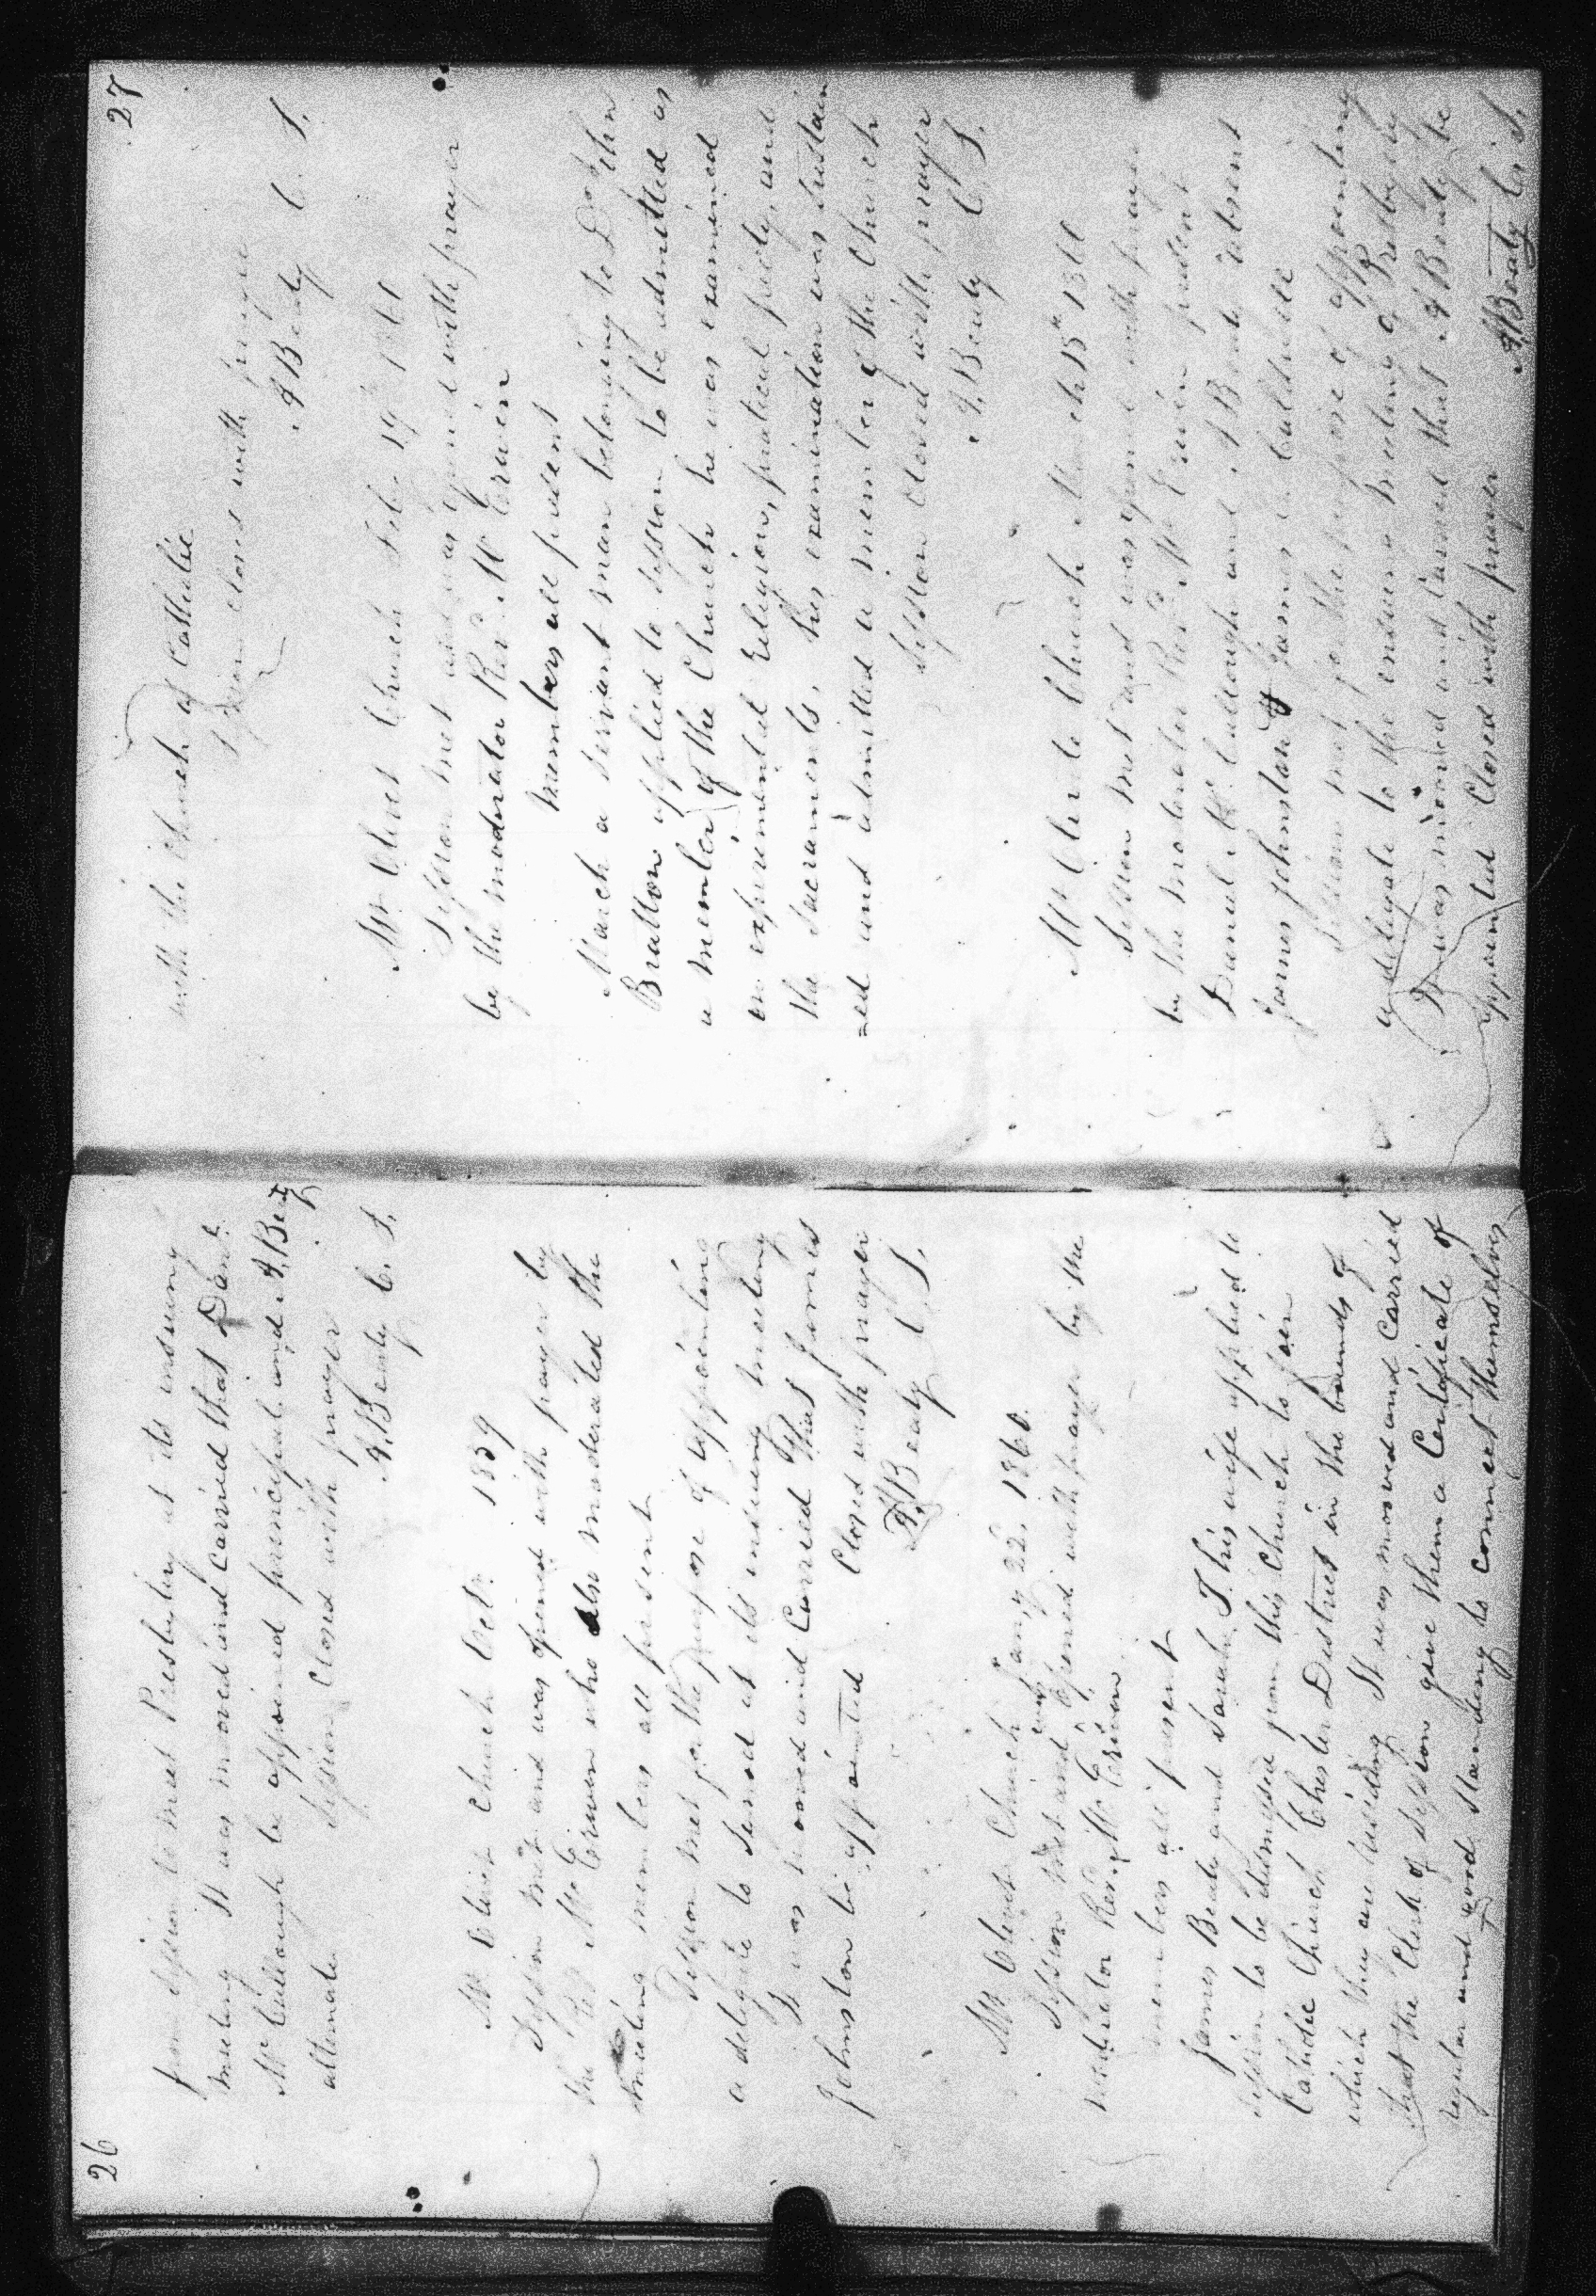 26
from Session to meet Presbytery at its ensuing
meeting It was moved and carried that Danl
McCullough be appointed principal and A. Beaty
alternate Session Closed with prayer
A. Beaty C. S.
Mt Olivet Church Octr. 1859
Session met and was opened with prayer by
the Rev Mc Erwin who also moderated the
meeting members all present
Session met for the purpose of appointing
a deligate to Sinod at its insuing meeting
It was moved and Carried That James
Johnston be appointed Closed with prayer
A. Beaty C. S.
Mt Olivet Church Jany 22. 1860.
Session met and was opened with prayer by the
moderator Rev. Mc Erwin.
members all present
James Beaty and Sarah J. his wife applied to
Session to be dismissed from this Church to join
Catholic Church Chester District in the bounds of
which they are residing It was mooved and Carried
that the Clerk of Session give them a Certificate of
regular and good standing to connect themselves
27
with the Church of Catholic
Session closed with prayer
A Beaty C. S.
Mt Olivet Church Feb. 19 1860
Session met and was opened with prayer
by the moderator Rev. Mc Erwin
Members all present
March a servant man belonging to Doc John
Bratton applied to Session to be admitted as
a member of the Church he was examined
on experimental Religion, pratical piety, and
the Sacraments, his examination was sustain
=ed and admitted a member of the Church
Session closed with prayer
A. Beaty C. S.
Mt Olivet Church March 15th 1860
Session met and was opened with prayer
by the moderator Rev. Mc Erwin present
Daniel McCullough and A Beaty absent
James Johnston & James Caldwell
Session met for the purpose of appointing
a deligate to the ensuing meeting of Presbytery
It was mooved and Carried that A Beaty be
appointed Closed with prayer
A. Beaty C. S.